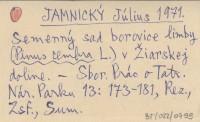 JAMNICKÝ Július 1971.
Semenný sad borovice limby
(Pinus cembra L.) v Žiarskej
doline. – Sbor. Prác o Tatr.
Nár. Parku 13: 173-181, Rez.,
Zsf., Sum.